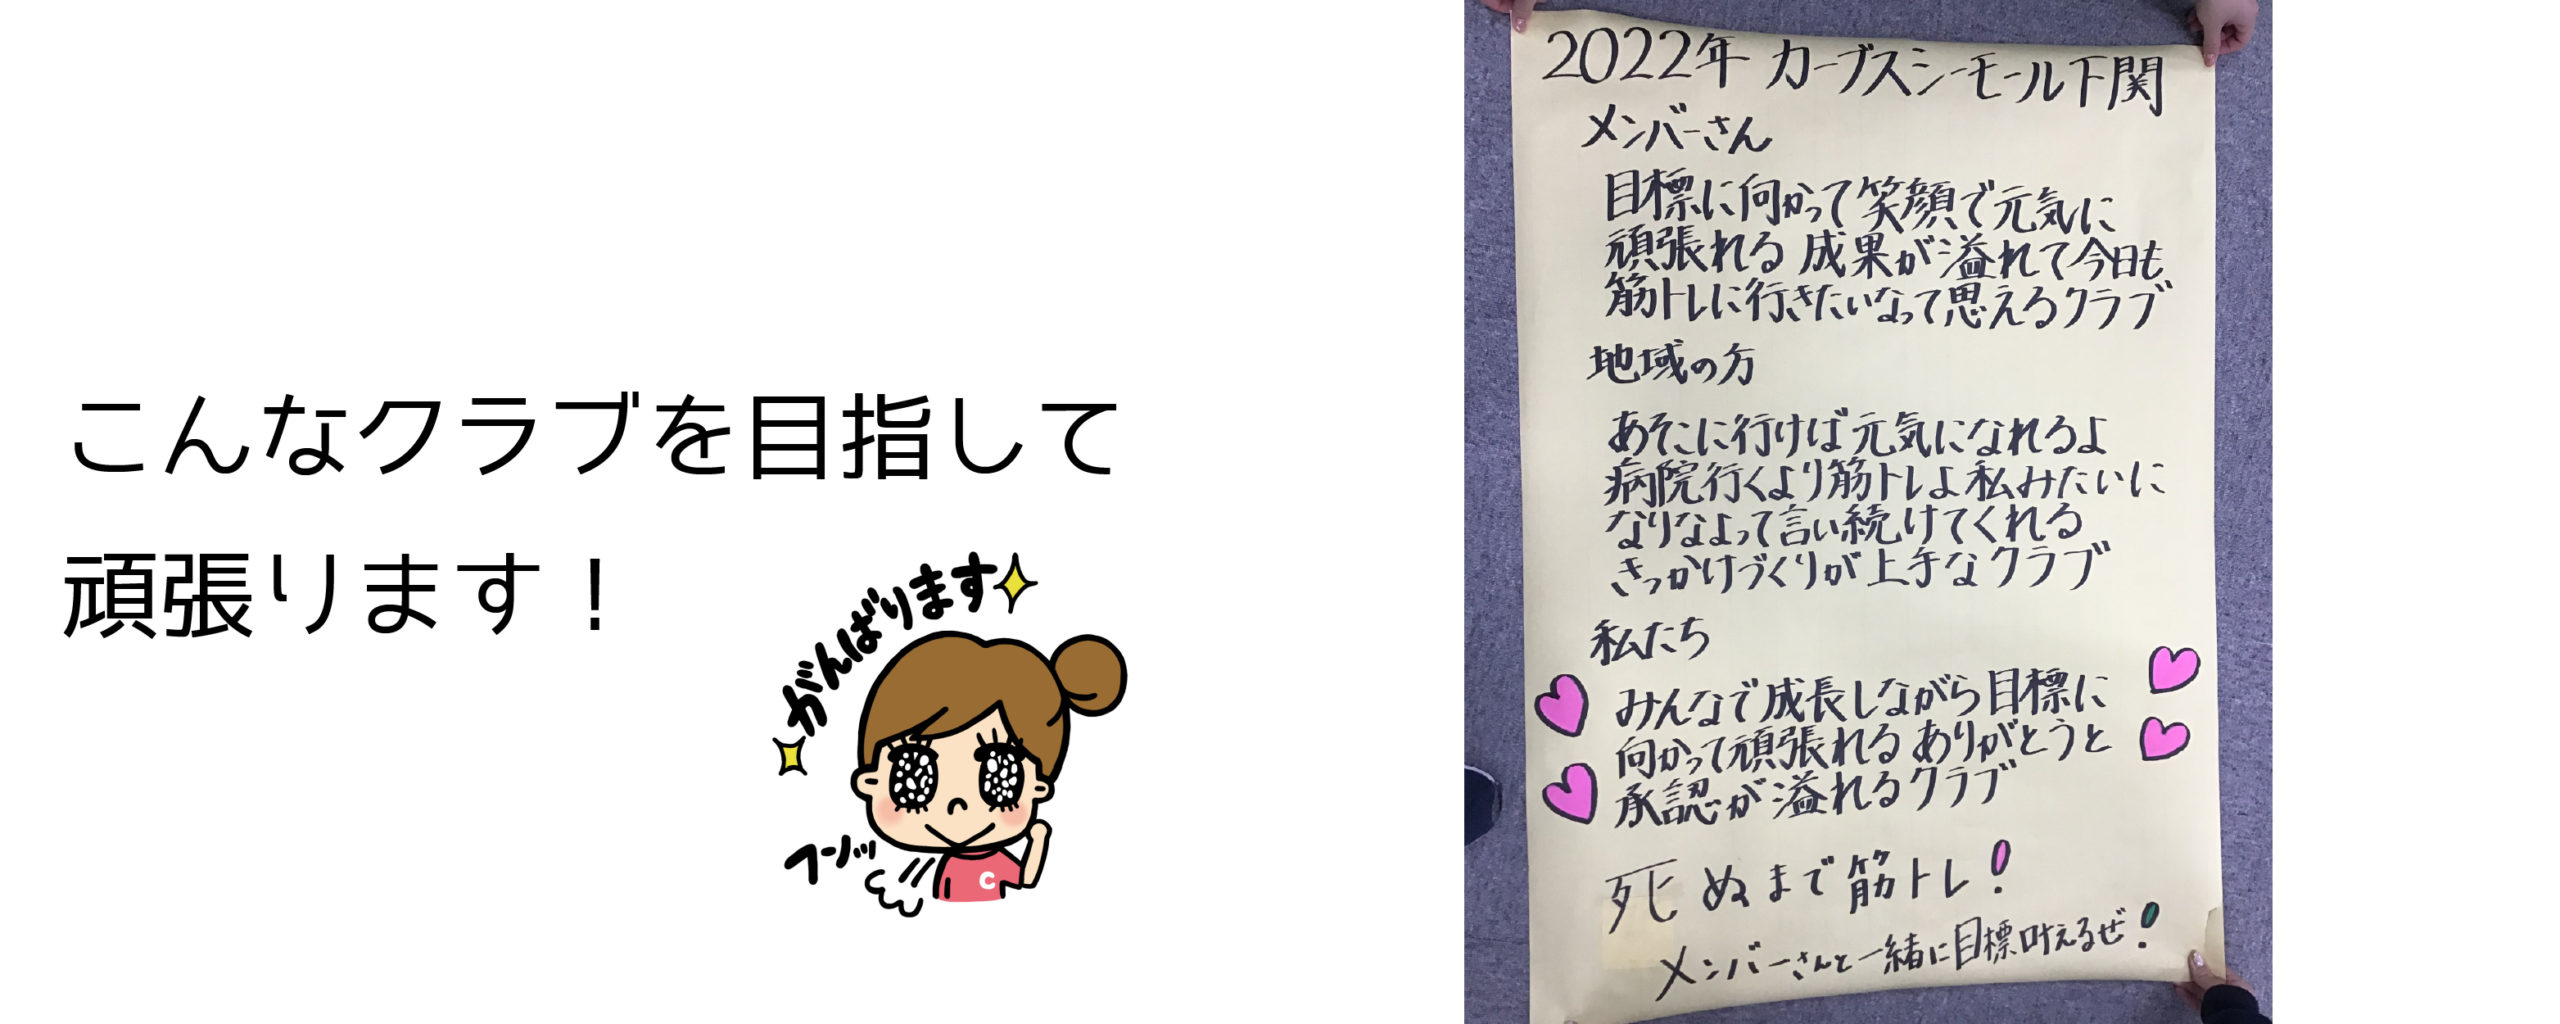 こんなクラブを目指して
頑張ります！
がんばります
フーンッ
C
2022年 カーブスシーモール下関
メンバーさん
目標に向かって笑顔で元気に
頑張れる 成果が溢れて今日も
筋トレに行きたいなって思えるクラブ
地域の方
あそこに行けば元気になれるよ
病院行くより筋トレよ私みたいに
なりなよって言い続けてくれる
きっかけづくりが上手なクラブ
私たち
みんなで成長しながら目標に
向かって頑張れる ありがとうと
承認が溢れるクラブ
死ぬまで筋トレ！
メンバーさんと一緒に目標叶えるぜ！